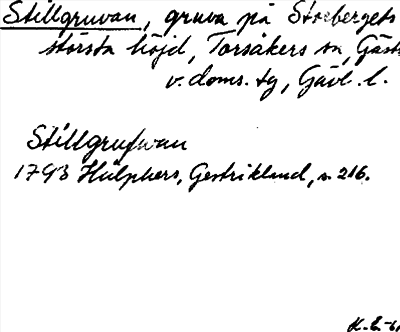 Stillgruvan, gruva på Storbergets
största höjd, Torsåkers sn, Gästr
v. doms. tg, Gävl. l.
Stillgrufwan
1793 Hülphers, Gestrikland, s. 216.
K. E-